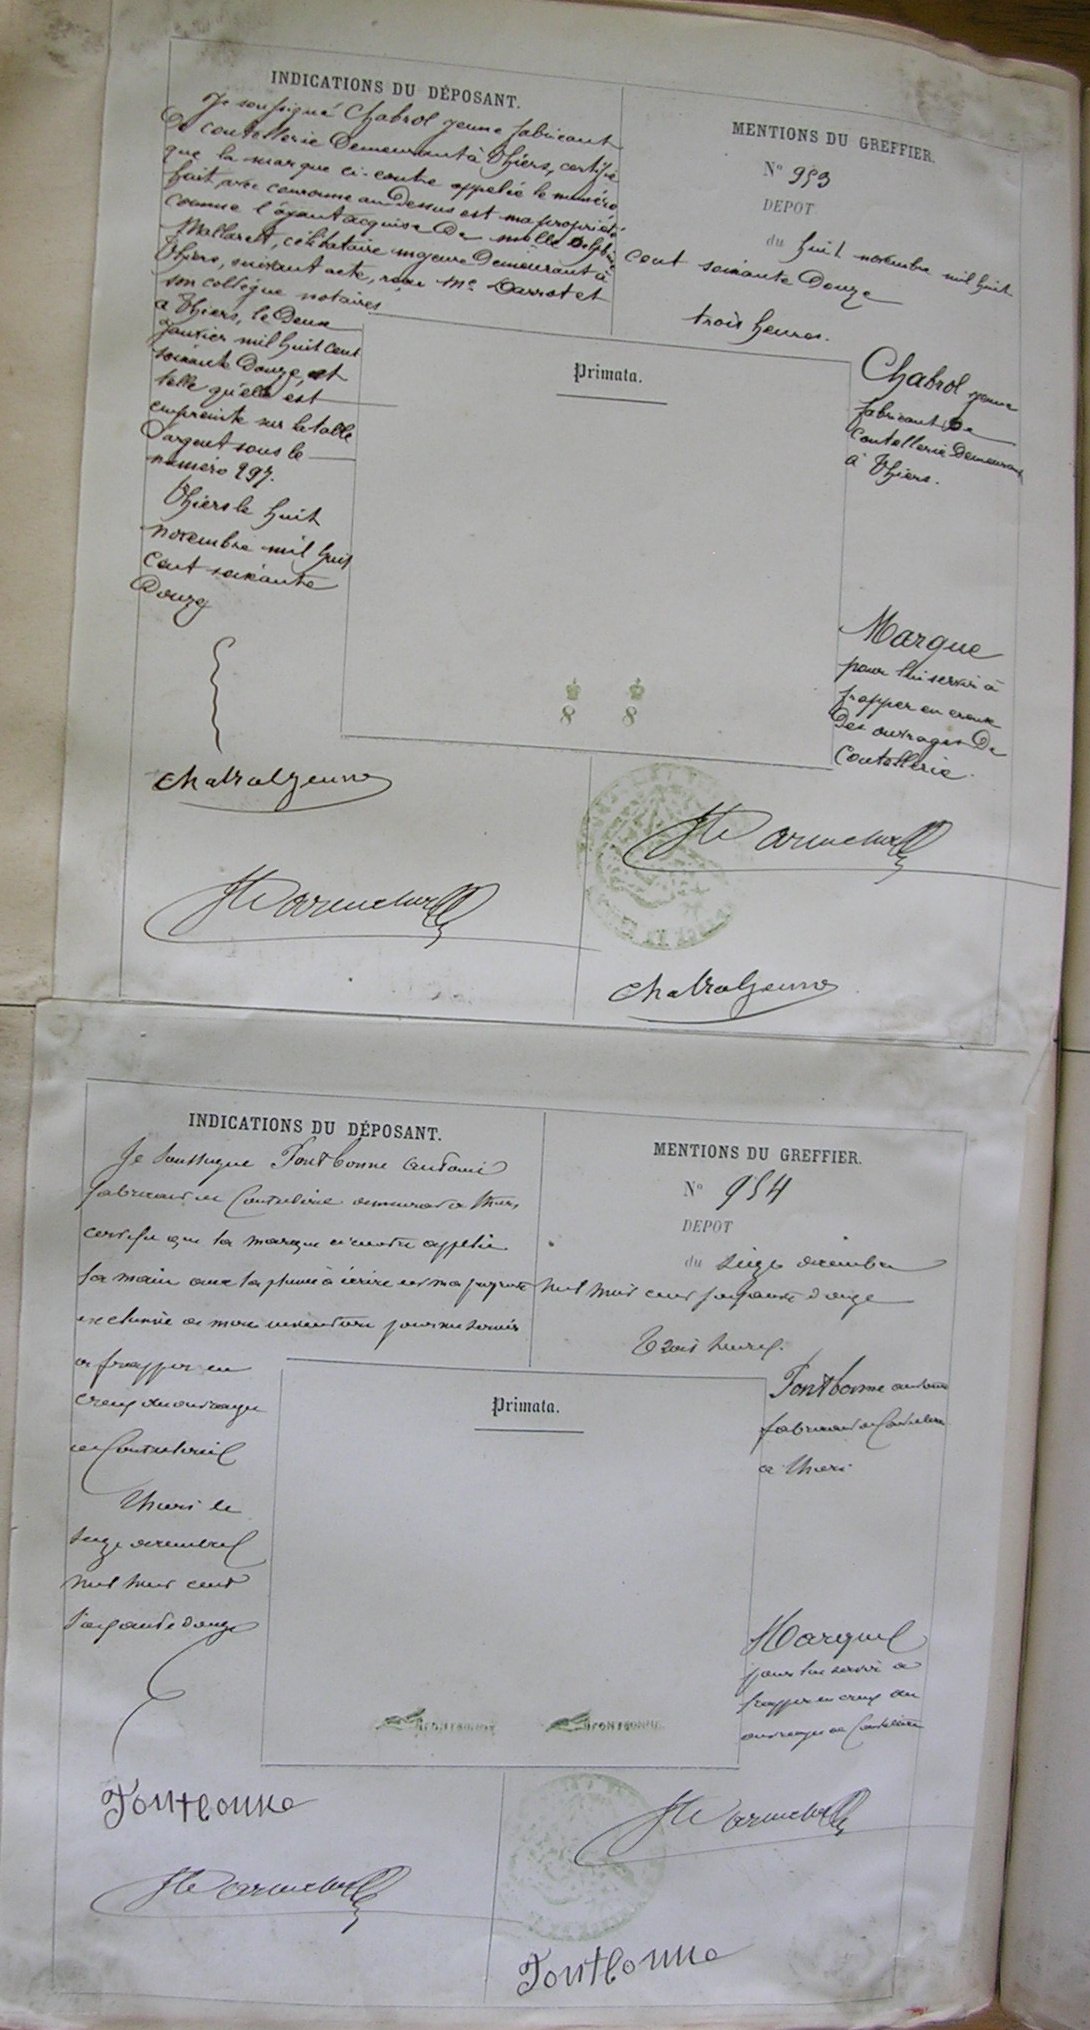 INDICATIONS DU DÉPOSANT.
Je soussigné Chabrol jeune fabricant
de coutellerie demeurant à Thiers, certifie
que la marque ci-contre appelée le numéro
huit, avec couronne au dessus est ma propriété
comme l'ayant acquise de melle
Mallaret, célibataire majeure demeurant à
Thiers, suivant acte, reçu Me Darrot et
son collègue notaires
à Thiers, le deux
janvier mil huit cent
soixante douze, et
telle qu'elle est
empreinte sur la table
d'argent sous le
numéro 297.
Thiers le huit
novembre mil huit
cent soixante
douze
Chabrol jeune
MENTIONS DU GREFFIER.
N° 953
DEPOT
du huit novembre mil huit
cent soixante douze
trois heures.
Primata.
Chabrol jeune
fabricant de
coutellerie demeurant
à Thiers.
Marque
pour lui servir à
frapper en creux
des ouvrages de
coutellerie.
8 8
Chabrol jeune
INDICATIONS DU DÉPOSANT.
Je soussigné Fontbonne antoine
fabricant de Coutellerie demeurant a thiers
certifie que la marque ci contre appelée
la main avec la plume à écrire est ma propriété
exclusive de mon invention pour me servir
a frapper en
creux des ouvrages
de Coutellerie
Thiers le
seize decembre
mil huit cent
soixante douze
Fontbonne
MENTIONS DU GREFFIER.
N° 954
DEPOT
du seize decembre
mil huit cent soixante douze
trois heures.
Primata.
Fontbonne antoine
fabricant de Coutellerie
a thiers
Marque
pour lui servir a
frapper en creux des
ouvrages de Coutellerie
FONTBONNE FONTBONNE
Fontbonne